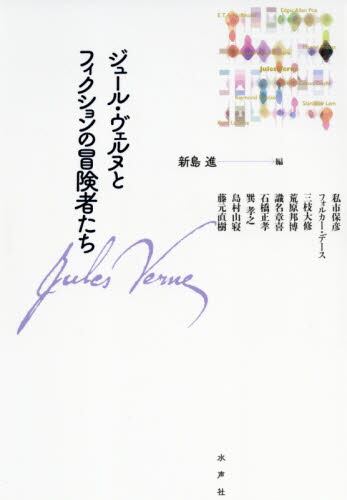 ジュール・ヴェルヌと
フィクションの冒険者たち
新島 進 編
E.T.
Edgar Allan Poe
Jules Verne
Raymond
Stanislaw Lem
私市保彦
フォルカー・デース
三枝大修
荒原邦博
識名章喜
石橋正孝
巽 孝之
島村山寝
藤元直樹
Jules Verne
水声社